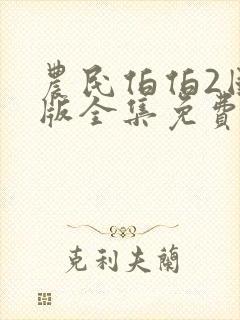 農民伯伯2
版全集免費
克利夫蘭